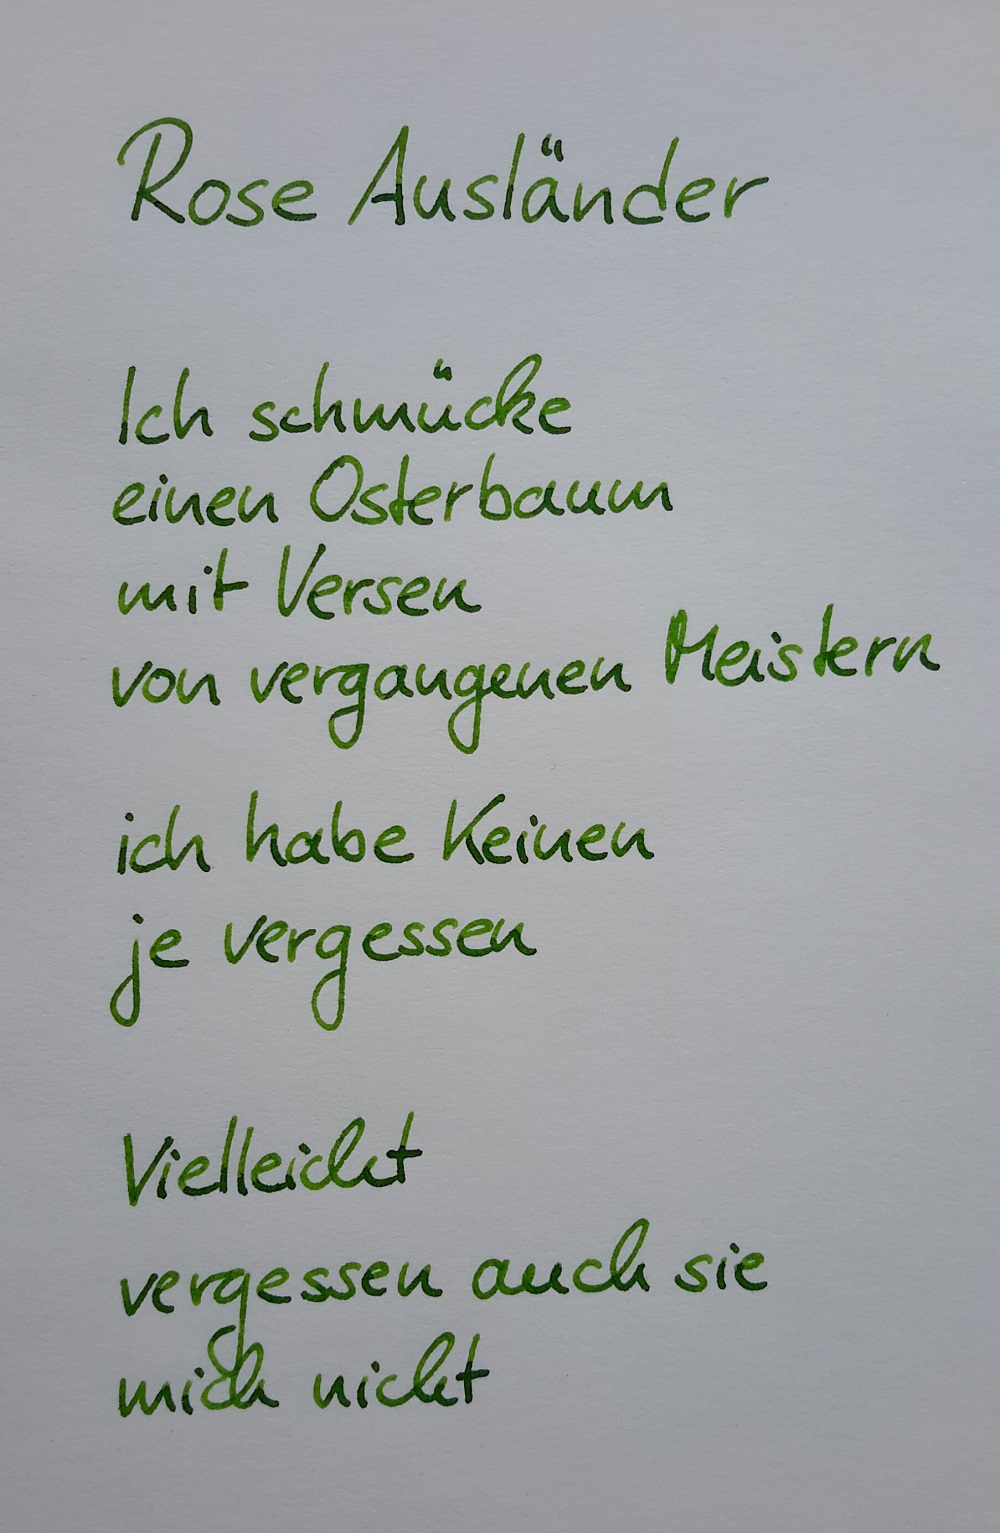 Rose Ausländer
Ich schmücke
einen Osterbaum
mit Versen
von vergangenen Meistern
ich habe Keinen
je vergessen
Vielleicht
vergessen auch sie
mich nicht